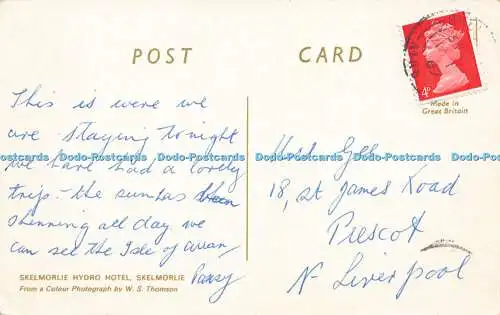 POST CARD
4D
Made in
Great Britain
This is were we
are staying tonight
we have had a lovely
trip - the sun has been
shinning all day we
can see the Isle of arran
Pansy
Mrs Gee
18, St James Road
Prescot
Nr Liverpool
Dodo-Postcards Dodo-Postcards Dodo-Postcards Dodo-Postcards Dodo-Postcards Dodo-Postcards
SKELMORLIE HYDRO HOTEL, SKELMORLIE
From a Colour Photograph by W. S. Thomson